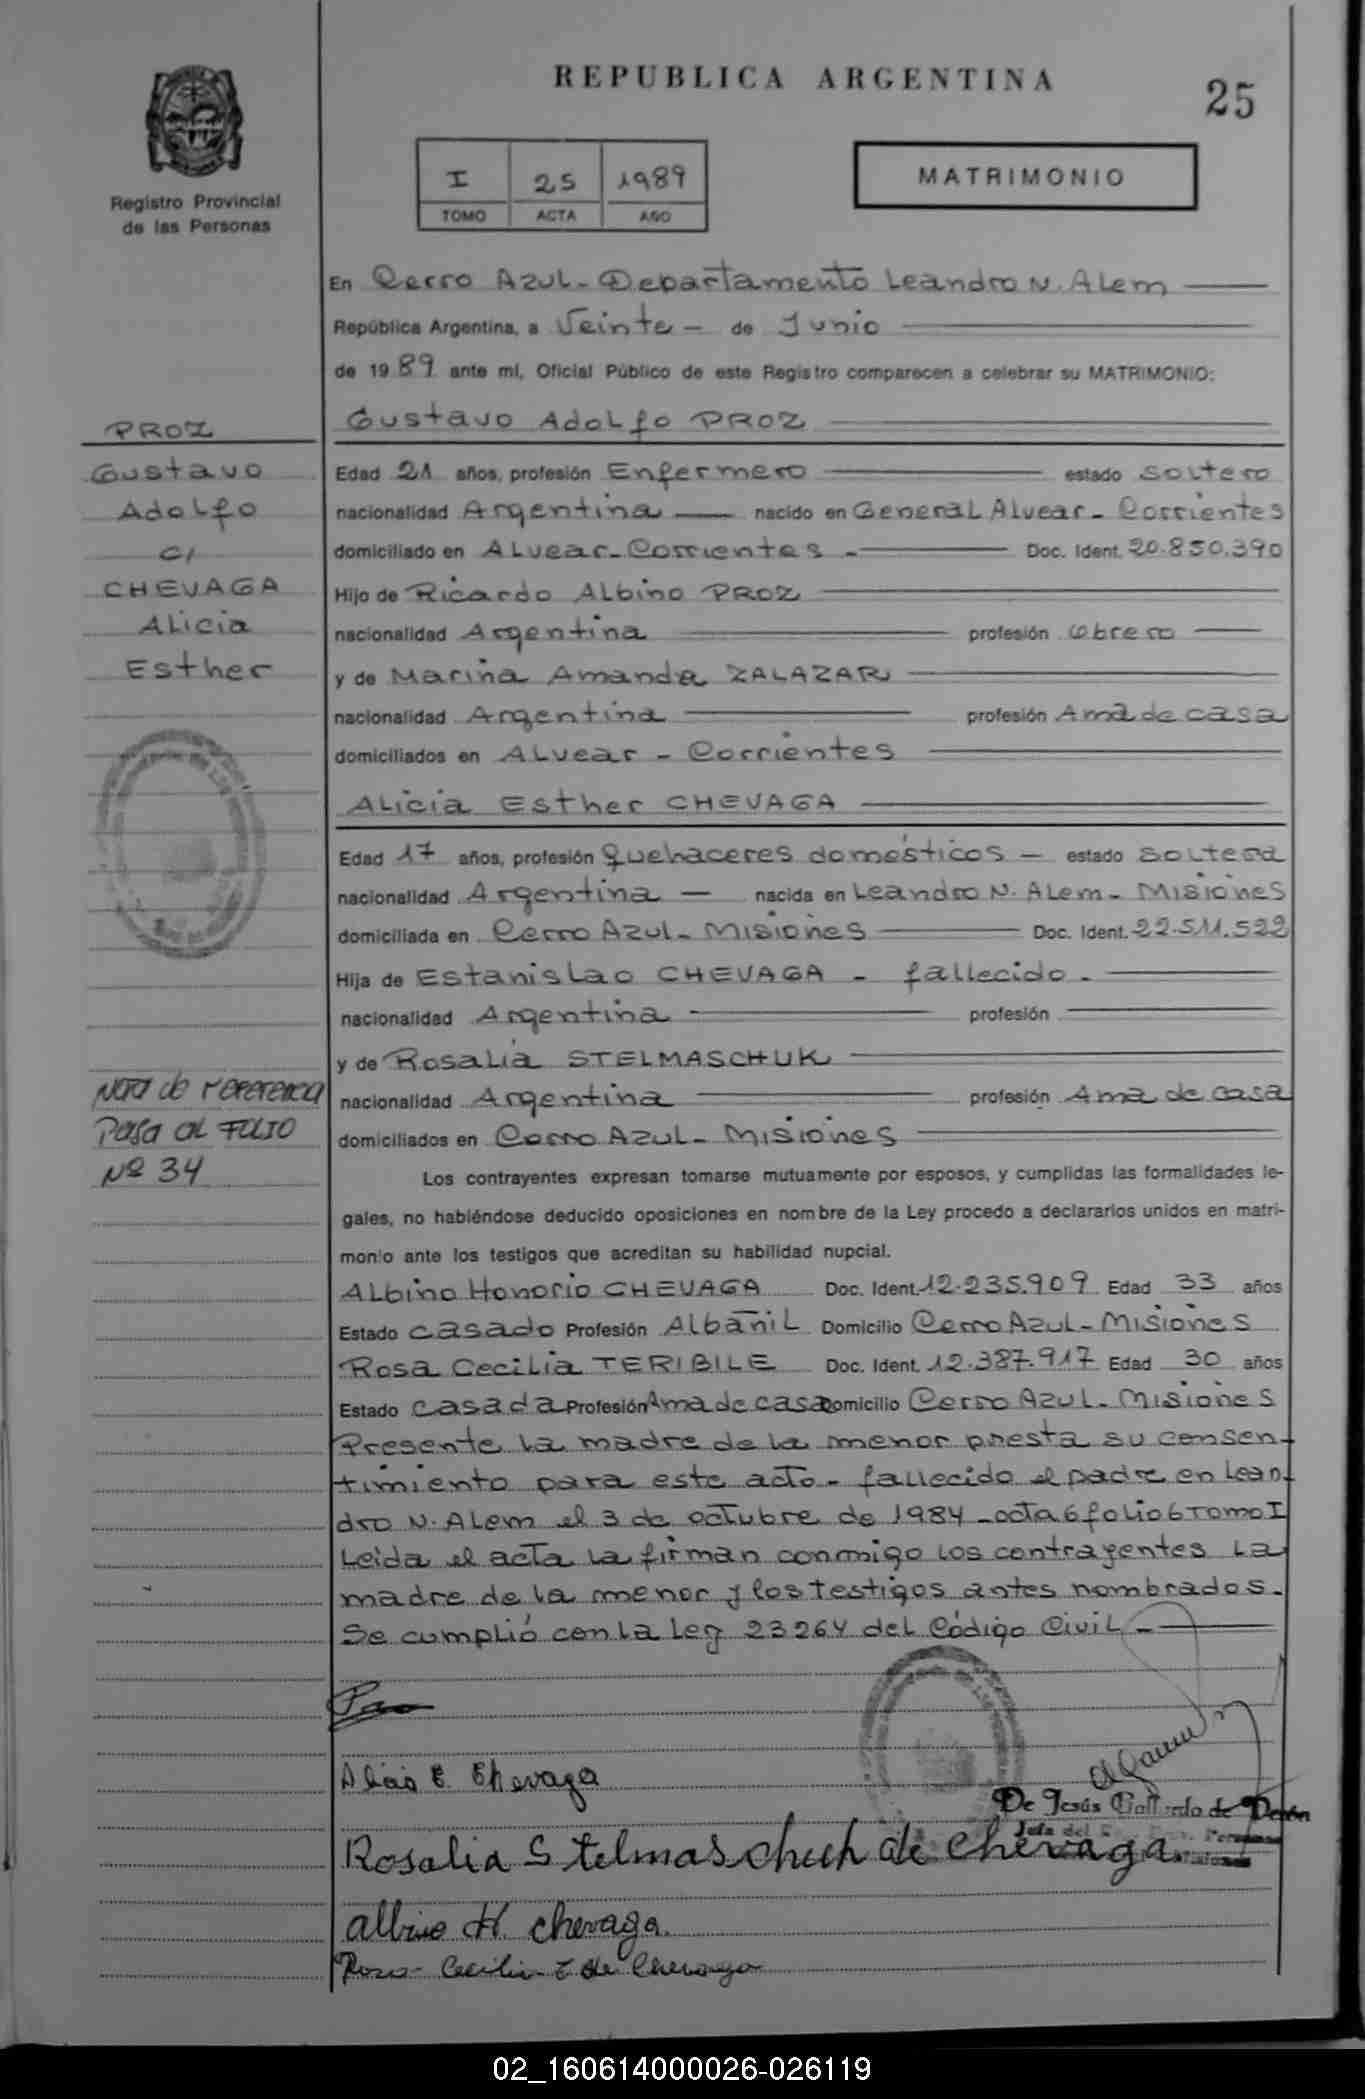 REPUBLICA ARGENTINA
25
Registro Provincial
de las Personas
I 25 1989
TOMO ACTA AÑO
MATRIMONIO
En Cerro Azul - Departamento Leandro N. Alem
República Argentina, a Veinte - de Junio
de 1989 ante mí, Oficial Público de este Registro comparecen a celebrar su MATRIMONIO:
Gustavo Adolfo PROZ
PROZ
Gustavo
Adolfo
c/
CHEVAGA
Alicia
Esther
Edad 21 años, profesión Enfermero estado soltero
nacionalidad Argentina nacido en General Alvear - Corrientes
domiciliado en Alvear - Corrientes - Doc. Ident. 20.850.390
Hijo de Ricardo Albino PROZ
nacionalidad Argentina profesión obrero
y de Marina Amanda ZALAZAR
nacionalidad Argentina profesión Ama de casa
domiciliados en Alvear - Corrientes
Alicia Esther CHEVAGA
Edad 17 años, profesión Quehaceres domésticos - estado soltera
nacionalidad Argentina - nacida en Leandro N. Alem - Misiones
domiciliada en Cerro Azul - Misiones Doc. Ident. 22.511.522
Hija de Estanislao CHEVAGA - fallecido -
nacionalidad Argentina profesión
y de Rosalia STELMASCHUK
nacionalidad Argentina profesión Ama de casa
domiciliados en Cerro Azul - Misiones
Nota de referencia
Pasa al FOLIO
Nº 34
Los contrayentes expresan tomarse mutuamente por esposos, y cumplidas las formalidades le-
gales, no habiéndose deducido oposiciones en nombre de la Ley procedo a declararlos unidos en matri-
monio ante los testigos que acreditan su habilidad nupcial.
Albino Honorio CHEVAGA Doc. Ident. 12.235.909 Edad 33 años
Estado casado Profesión Albañil Domicilio Cerro Azul - Misiones
Rosa Cecilia TERIBILE Doc. Ident. 12.387.917 Edad 30 años
Estado casada Profesión Ama de casa Domicilio Cerro Azul - Misiones
Presente la madre de la menor presta su consen-
timiento para este acto - fallecido el padre en Lean-
dro N. Alem el 3 de octubre de 1984 - acta 6 folio 6 Tomo I
Leida el acta la firman conmigo los contrayentes la
madre de la menor y los testigos antes nombrados.
Se cumplió con la Ley 23264 del Código Civil -
Alicia E. Chevaga
De Jesús Gallardo de
Jefa del
Rosalia Stelmaschuk de Chevaga
Albino H. Chevaga.
Rosa Cecilia T. de Chevaga
02_160614000026-026119